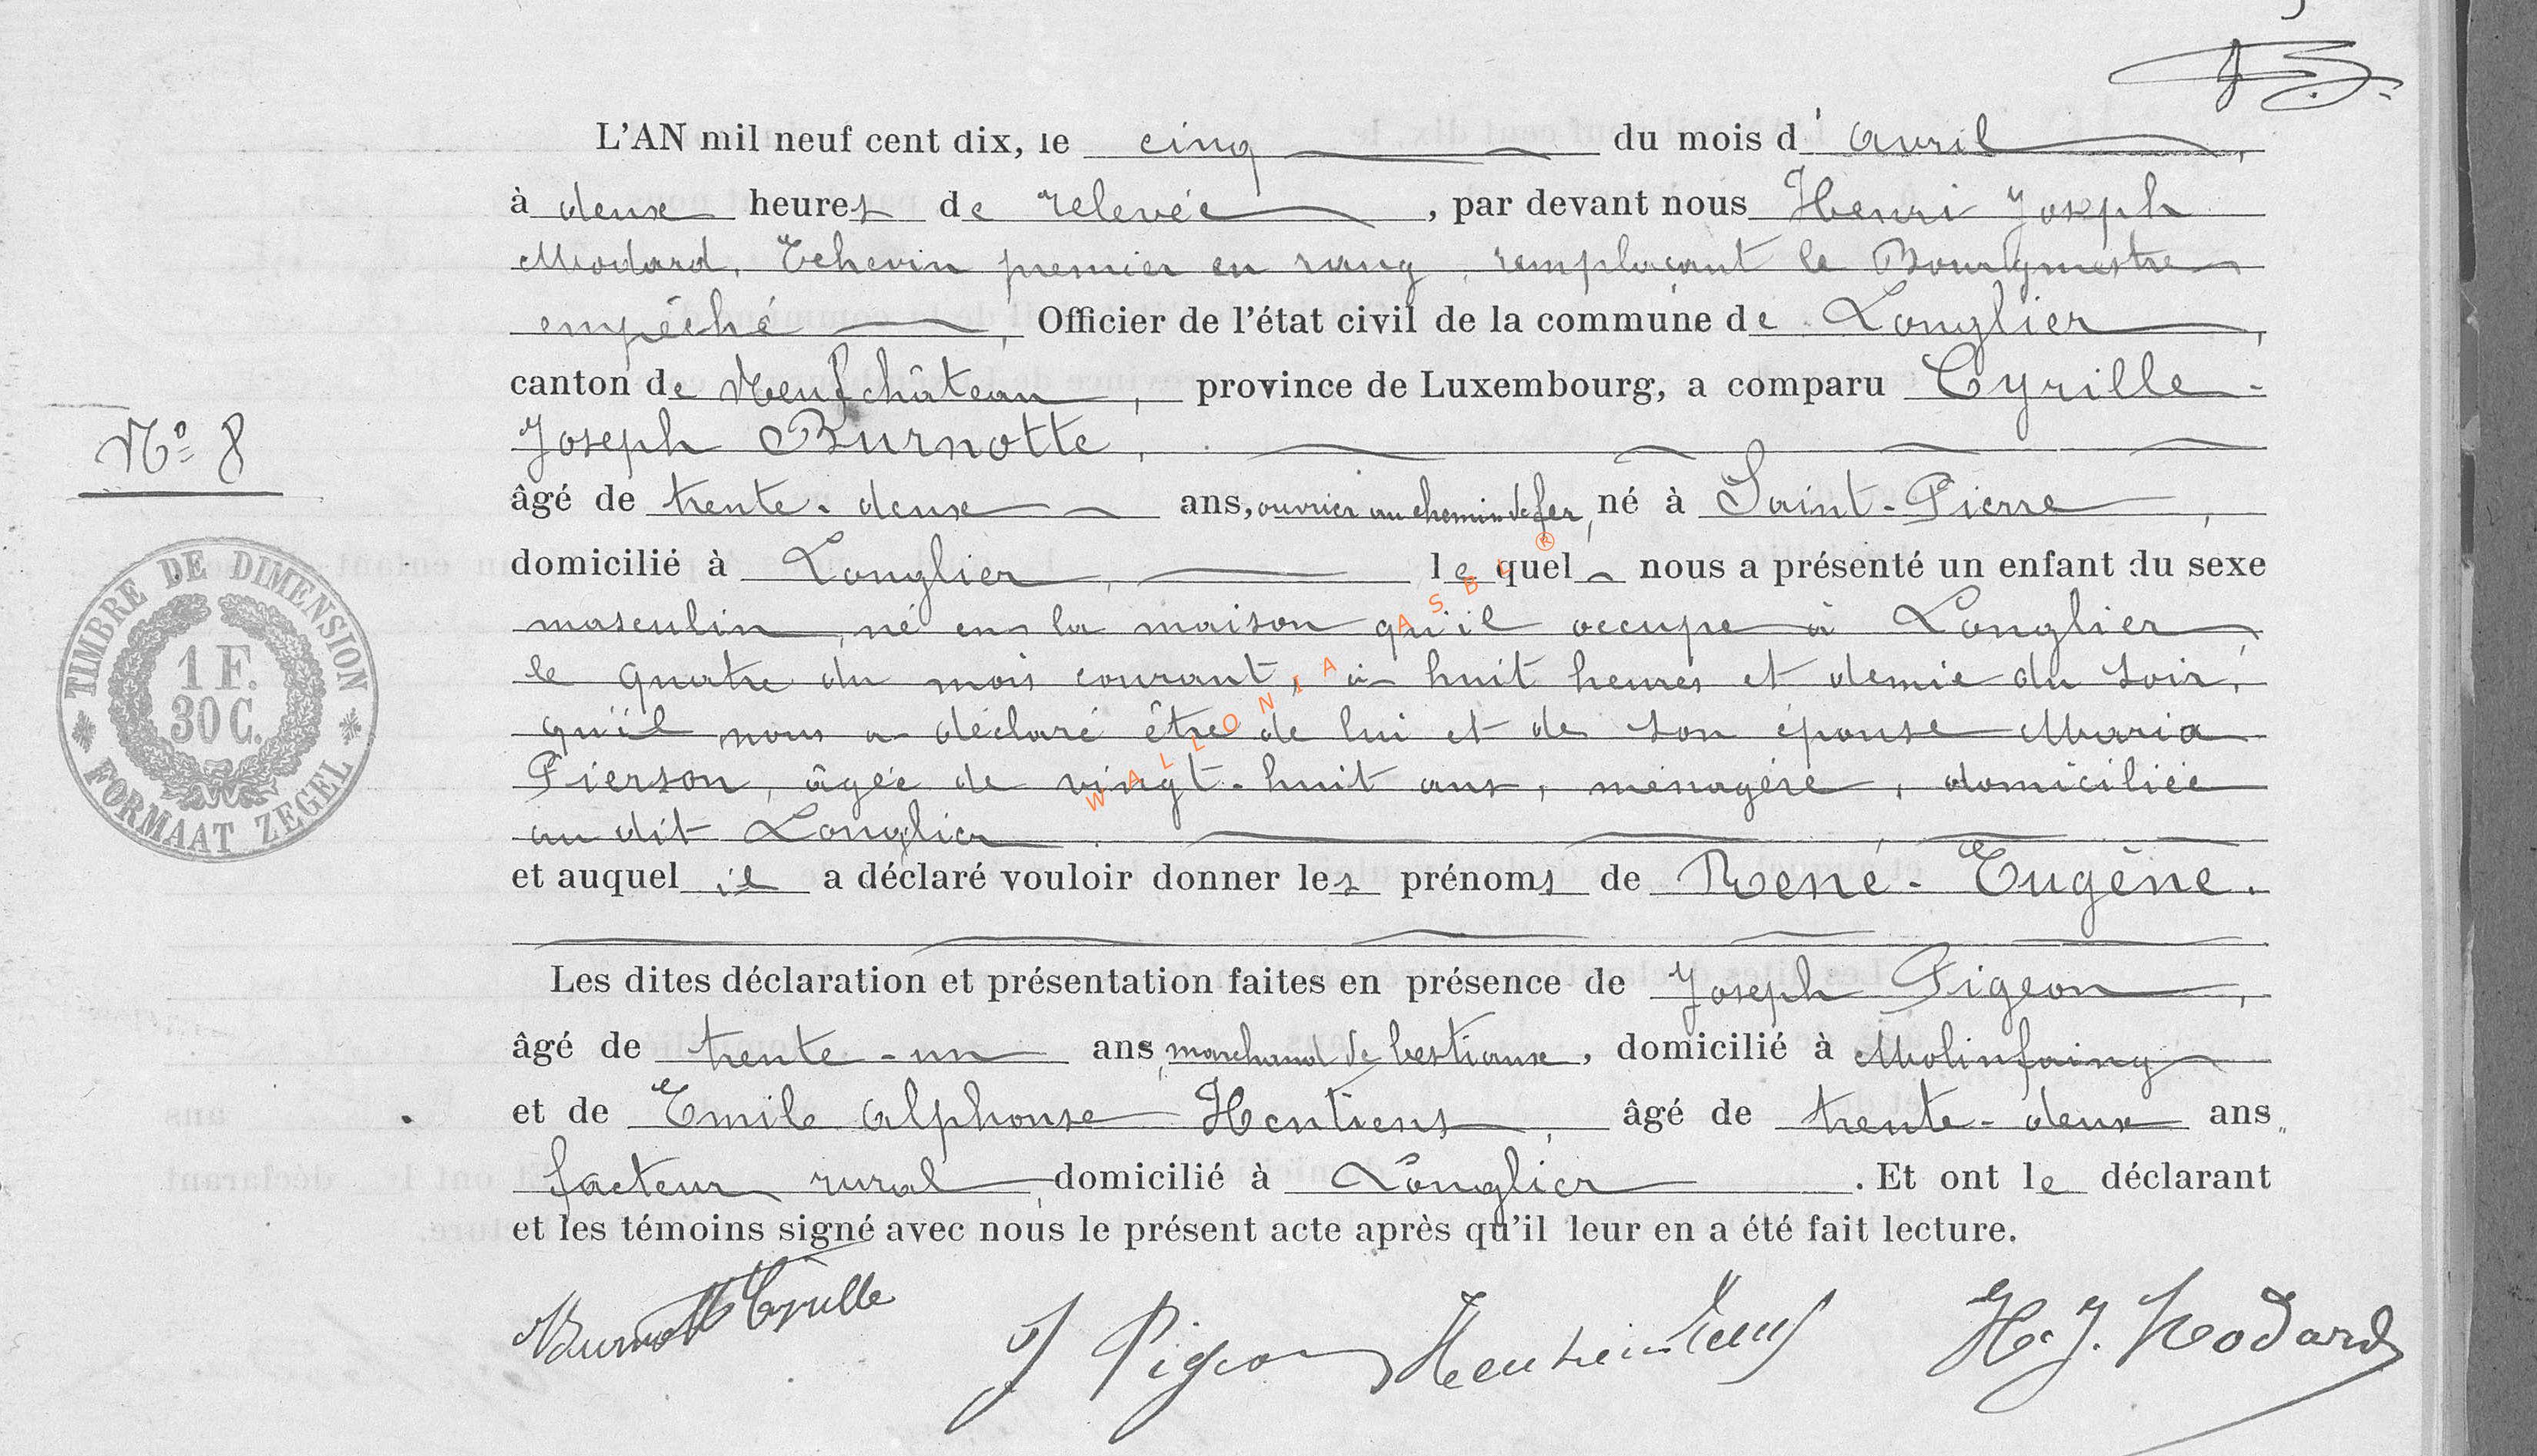 L'AN mil neuf cent dix, le cinq du mois d'avril,
à deux heures de relevée, par devant nous Henri Joseph
Modard, Echevin premier en rang, remplaçant le Bourgmestre
empêché, Officier de l'état civil de la commune de Longlier,
canton de Neufchâteau, province de Luxembourg, a comparu Cyrille-
Joseph Burnotte,
N° 8
âgé de trente-deux ans, ouvrier au chemin de fer, né à Saint-Pierre,
domicilié à Longlier, lequel nous a présenté un enfant du sexe
masculin, né en la maison qu'il occupe à Longlier,
le quatre du mois courant, à huit heures et demie du soir,
qu'il nous a déclaré être de lui et de son épouse Maria
Pierson, âgée de vingt-huit ans, ménagère, domiciliée
au dit Longlier.
et auquel il a déclaré vouloir donner les prénoms de René-Eugène.
Les dites déclaration et présentation faites en présence de Joseph Pigeon,
âgé de trente-un ans, marchand de bestiaux, domicilié à Molinfaing
et de Emile Alphonse Hentiens, âgé de trente-deux ans,
facteur rural, domicilié à Longlier. Et ont le déclarant
et les témoins signé avec nous le présent acte après qu'il leur en a été fait lecture.
Burnotte Cyrille
J Pigeon
H. J. Modard
TIMBRE DE DIMENSION
1 F.
30 C.
FORMAAT ZEGEL
WALLONIA ASBL ®